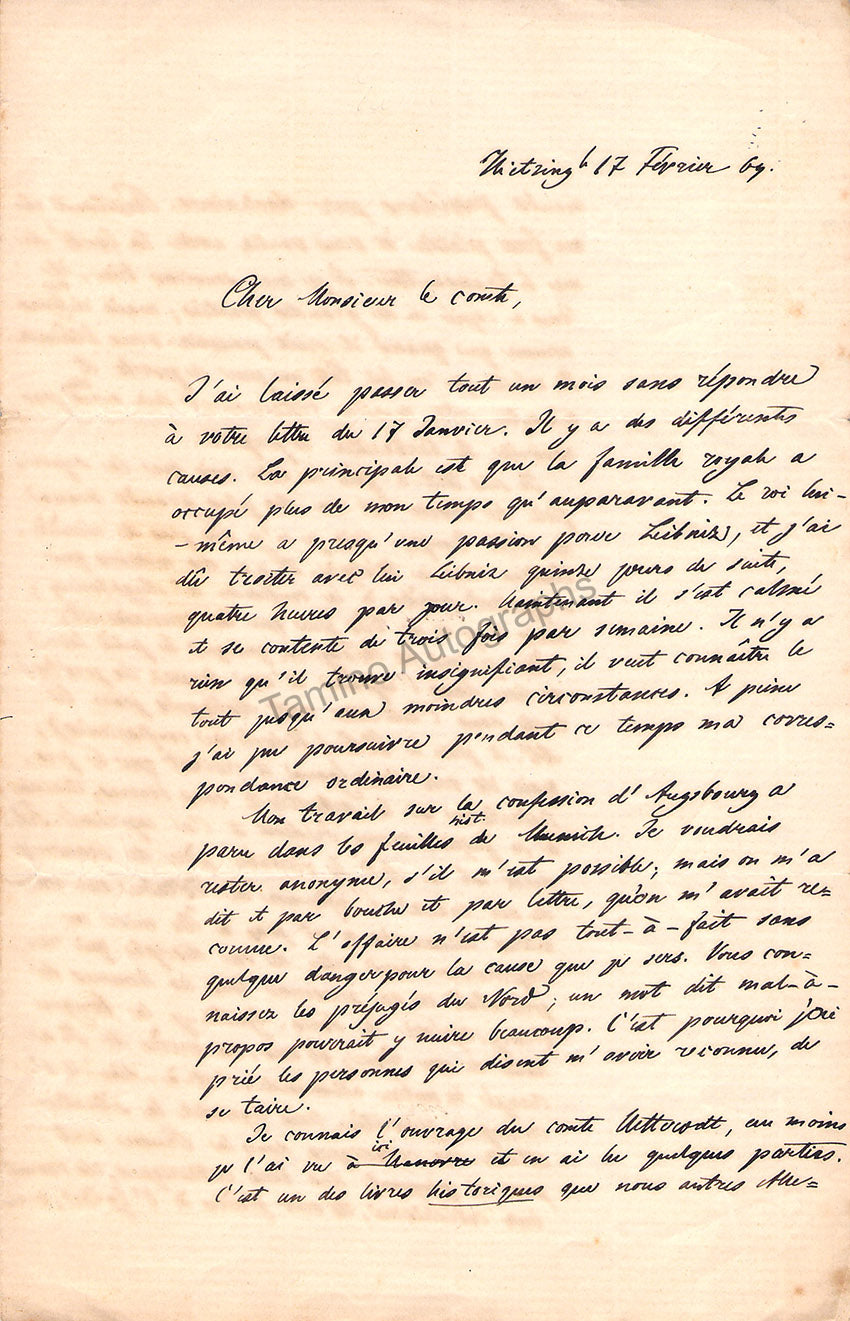 Hietzing 17 Février 69.
Cher Monsieur le comte,
J'ai laissé passer tout un mois sans répondre
à votre lettre du 17 Janvier. Il y a des différentes
causes. La principale est que la famille royale a
occupé plus de mon temps qu'auparavant. Le roi lui-
-même a presqu'une passion pour Leibniz, et j'ai
dû traiter avec lui Leibniz quinze jours de suite,
quatre heures par jour. Maintenant il s'est calmé
et se contente de trois fois par semaine. Il n'y a
rien qu'il trouve insignifiant, il veut connaître le
tout jusqu'aux moindres circonstances. A peine
j'ai pu poursuivre pendant ce temps ma corres=
pondance ordinaire.
Mon travail sur la confession d'Augsbourg a
paru dans les feuilles hist. de Munich. Je voudrais
rester anonyme, s'il m'est possible; mais on m'a
dit et par bouche et par lettre, qu'on m'avait re=
connu. L'affaire n'est pas tout-à-fait sans
quelque danger pour la cause que je sers. Vous con=
naissez les préjugés du Nord; un mot dit mal-à-
propos pourrait y nuire beaucoup. C'est pourquoi j'ai
prié les personnes qui disent m'avoir reconnu, de
se taire.
Je connais l'ouvrage du comte Uetterodt, au moins
je l'ai vu à Hanovre ici et en ai lu quelques parties.
C'est un des livres historiques que nous autres Alle=
Tamino Autographs